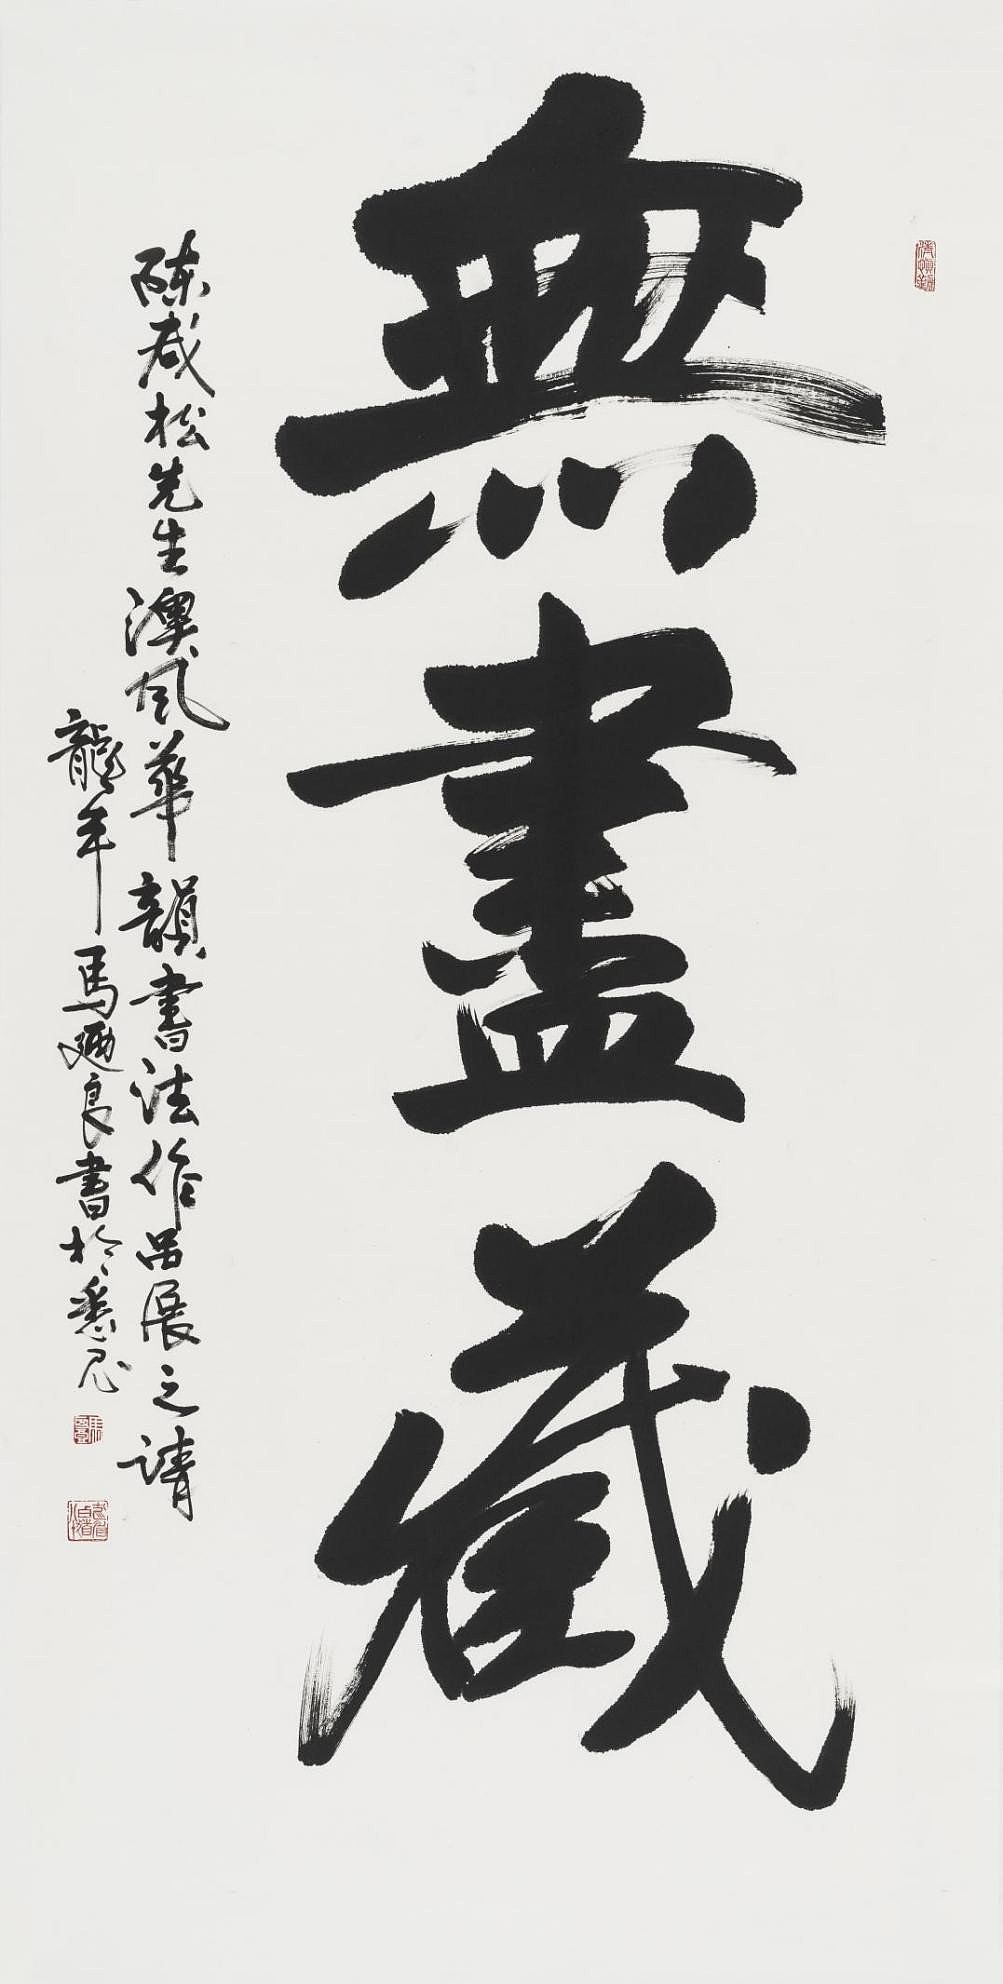 無盡藏
陳咸松先生澳風華韻書法作品展之請
龍年馬廼良書於悉尼